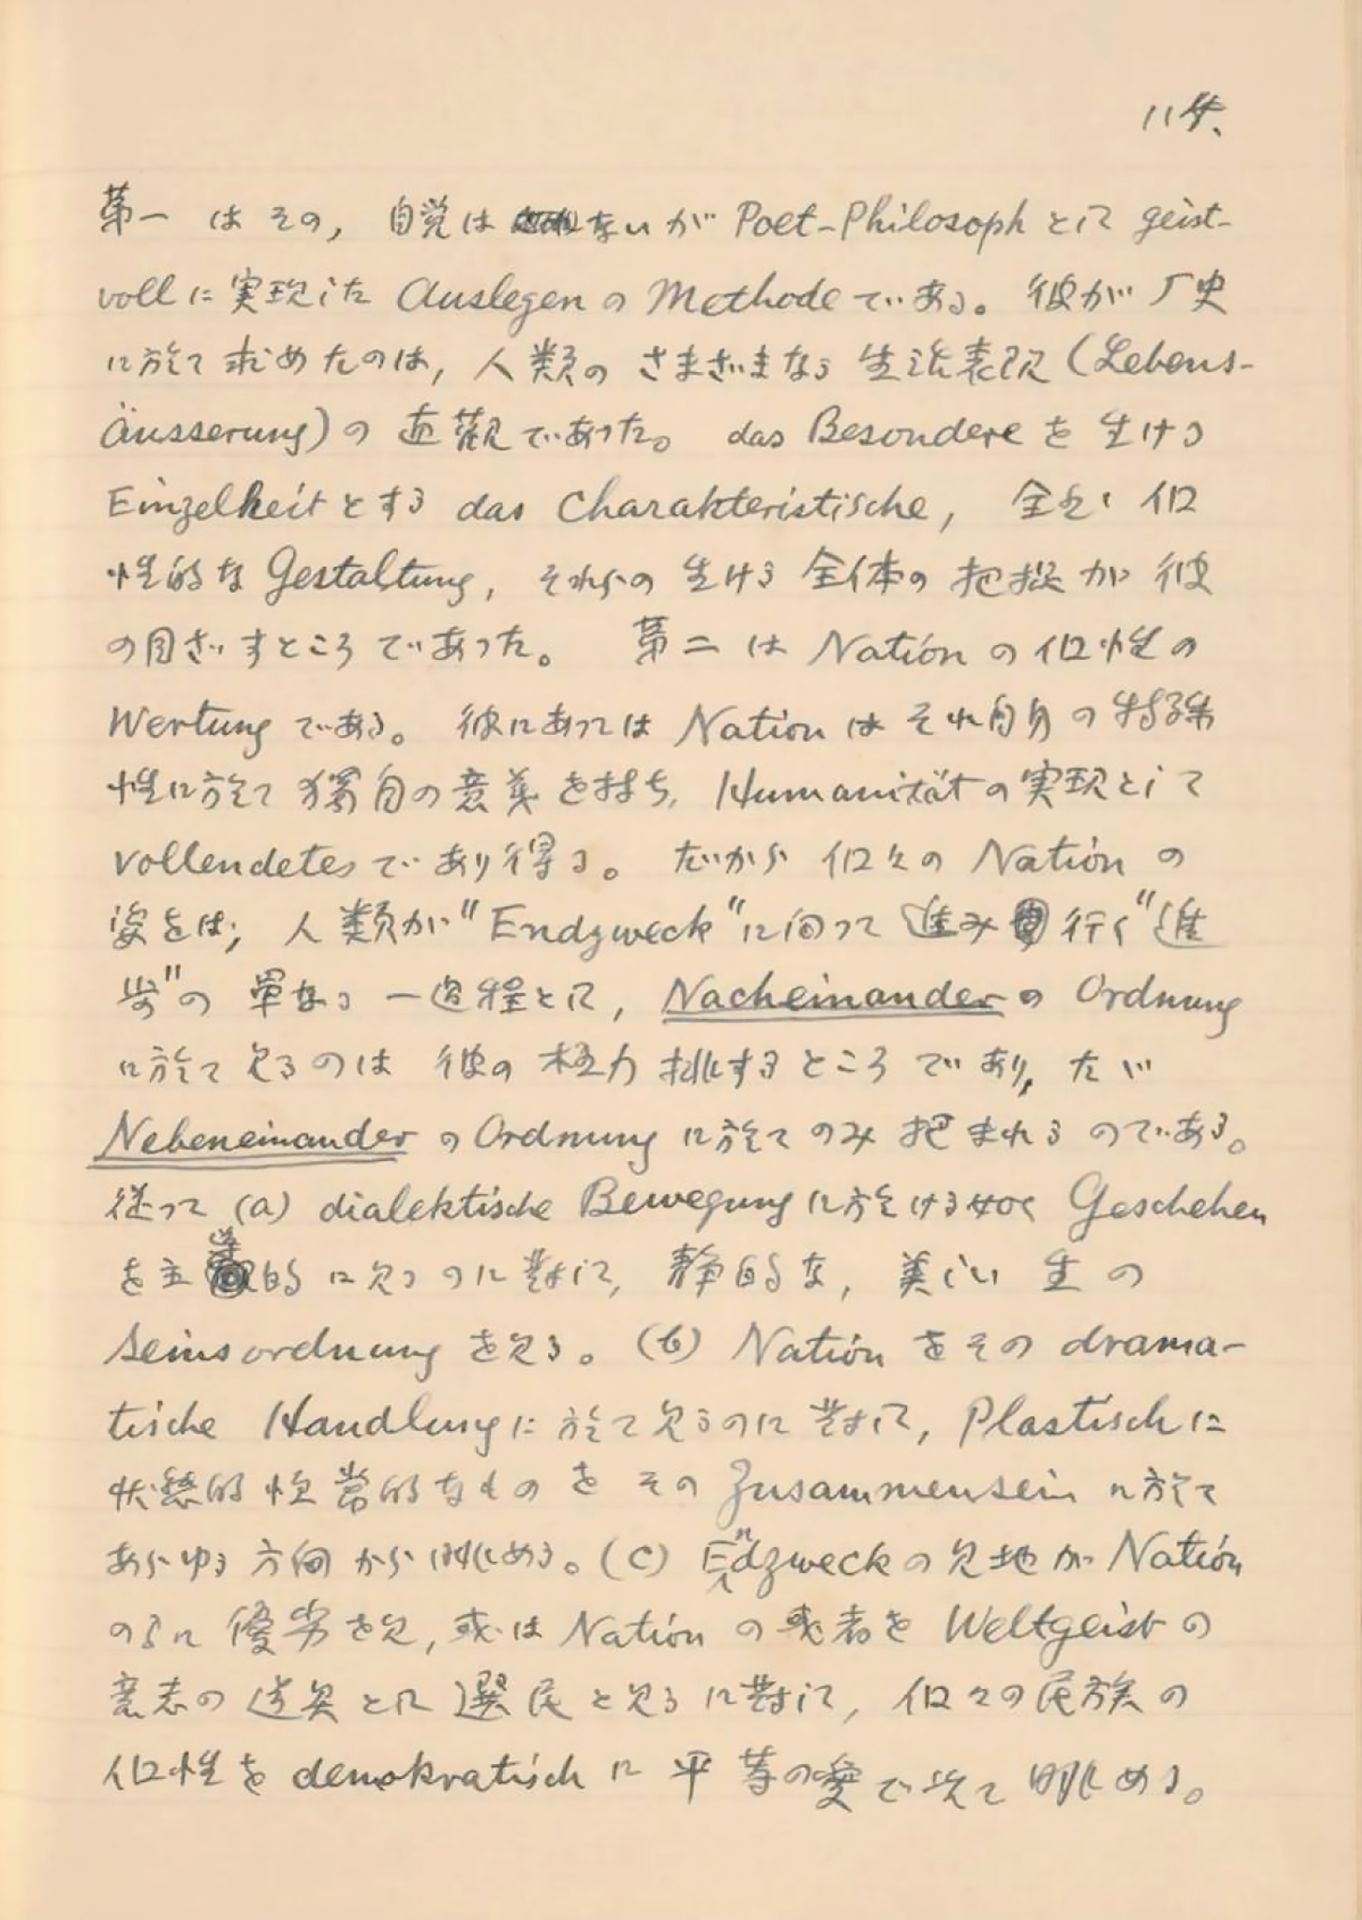 第一 はその, 自覚はないが Poet-Philosoph として geist-
voll に実現した Auslegen の Methode である。 彼が 厂史
に於て求めたのは, 人類の さまざまなる 生活表現 (Lebens-
äusserung) の 直観であった。 das Besondere を 生ける
Einzelheit とする das Charakteristische, 全き 個
性的な Gestaltung, それらの 生ける 全体の 把握が 彼
の目ざすところであった。 第二は Nation の個性の
Wertung である。 彼にあっては Nation はそれ自身の特殊
性に於て 独自の意義を持ち, Humanität の実現として
vollendetes であり得る。 だから 個々の Nation の
姿をば, 人類が "Endzweck" に向って進み行く "進
歩" の 単なる 一過程として, Nacheinander の Ordnung
に於て見るのは 彼の 極力 排するところであり, ただ
Nebeneinander の Ordnung に於てのみ 把まれるのである。
従って (a) dialektische Bewegung に於ける如く Geschehen
を主導的に見るのに対して, 静的な, 美しい 生の
Seinsordnung を見る。 (b) Nation をその drama-
tische Handlung に於て見るのに対して, Plastisch に
状態的恒常的なものを その Zusammensein に於て
あらゆる 方向から眺める。 (c) Endzweck の見地が Nation
のうに 優劣を見, 或は Nation の或者を Weltgeist の
意志の道具として選民と見るに対して, 個々の民族の
個性を demokratisch に 平等の愛で以て眺める。